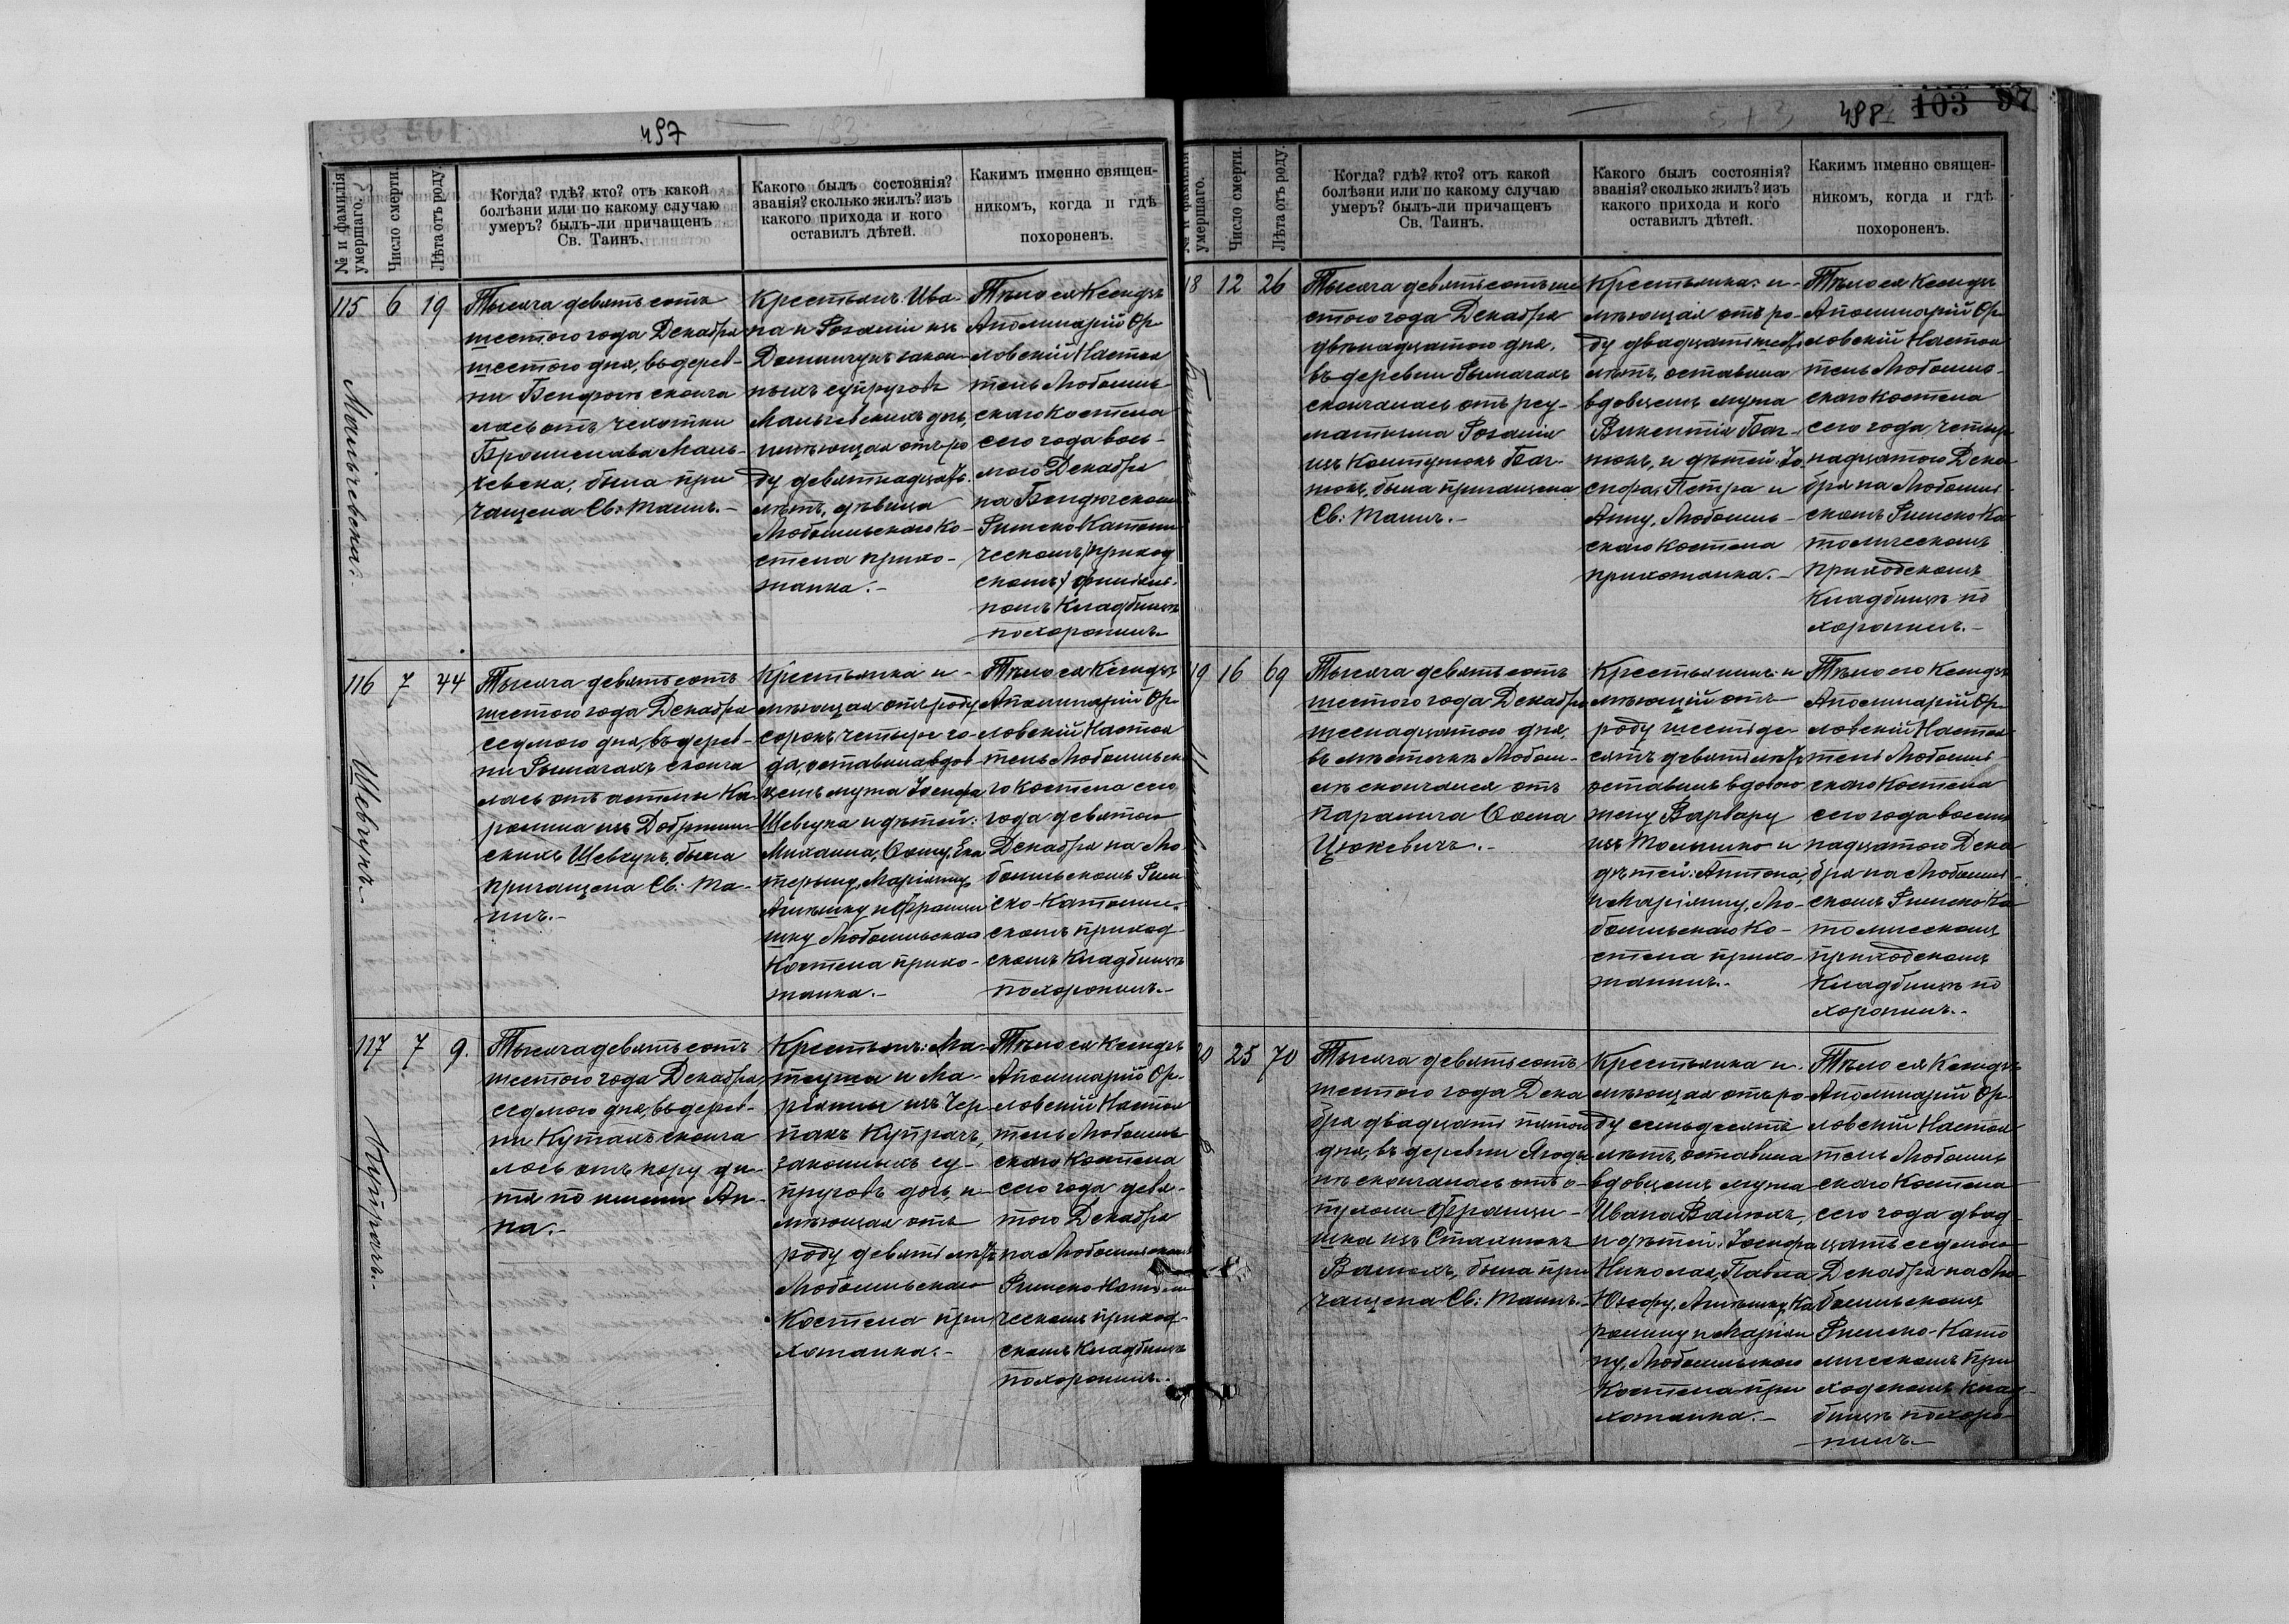 497
№ и фамилія умершаго.
Число смерти.
Лѣта отъ роду.
Когда? гдѣ? кто? отъ какой
болѣзни или по какому случаю
умеръ? былъ-ли причащенъ
Св. Таинъ.
Какого былъ состоянія?
званія? сколько жилъ? изъ
какого прихода и кого
оставилъ дѣтей.
Какимъ именно священ-
никомъ, когда и гдѣ
похороненъ.
115
6
19
Тысяча девятьсотъ
шестого года Декабря
шестого дня, въ дерев-
ни сконча
лась отъ чахотки
Брониславa Маль-
чевска, была при
чащена Св: Таинъ.-
Крестьянъ Ива-
на и Розаліи изъ
закон-
ныхъ супруговъ
Мальчевскихъ дочь,
имѣющая отъ ро
ду девятнадцать
лѣтъ, дѣвица
Любомльскаго Ко-
стела прихо-
жанка.-
Тѣло ея Ксендзъ
Аполинарій Ор-
ловскій Настоя
тель Любомль
скаго Костела
сего года вось-
мого Декабря
на Бендюгскомъ
Римско Католи
ческомъ приход
скомъ филіаль-
номъ Кладбищѣ
похоронилъ.
Мальчевска.
116
7
44
Тысяча девятьсотъ
шестого года Декабря
седмого дня, въ дерев-
ни Рымачахъ сконча
лась отъ астмы Ка-
ролина изъ
скихъ Шевчукъ, была
причащена Св: Та-
инъ.-
Крестьянка и-
мѣющая отъ роду
сорокъ четыре го-
да, оставила вдов-
цемъ мужа Іосифа
Шевчука и дѣтей:
Михаила, Ѳому, Ека
терину, Маріянну,
Агнѣшку и Францы
шку Любомльскаго
Костела прихо-
жанка.-
Тѣло ея Ксендзъ
Аполинарій Ор-
ловскій Настоя
тель Любомльска
го Костела сего
года девятого
Декабря на Лю-
бомльскомъ Рим
ско-Католиче
скомъ приход-
скомъ Кладбищѣ
похоронилъ.-
Шевчукъ.-
117
7
9.
Тысяча девятьсотъ
шестого года Декабря,
седмого дня, въ дерев-
ни Кутахъ сконча
лось отъ кору ди-
тя по имени Ан-
на.-
Крестьянъ: Ма-
теуша и Ма-
ріянны изъ Чер
пакъ Купрачъ,
законныхъ су-
пруговъ дочь, и-
мѣющая отъ
роду девять лѣтъ
Любомльскаго
Костела при
хожанка.-
Тѣло ея Ксендзъ
Аполинарій Ор-
ловскій Настоя
тель Любомль
скаго Костела
сего года девя-
того Декабря
на Любомльскомъ
Римско-Католи
ческомъ приход-
скомъ Кладбищѣ
похоронилъ.-
Купрачъ.-
498
103
97
№ и фамилія умершаго.
Число смерти.
Лѣта отъ роду.
Когда? гдѣ? кто? отъ какой
болѣзни или по какому случаю
умеръ? былъ-ли причащенъ
Св. Таинъ.
Какого былъ состоянія?
званія? сколько жилъ? изъ
какого прихода и кого
оставилъ дѣтей.
Какимъ именно священ-
никомъ, когда и гдѣ
похороненъ.
18
12
26
Тысяча девятьсотъ ше
стого года Декабря
двѣнадцатого дня,
въ деревни Рымачахъ
скончалась отъ рев-
матизма Розалія
изъ
была причащена
Св: Таинъ.-
Крестьянка и-
мѣющая отъ ро-
ду двадцать шесть
лѣтъ, оставила
вдовцемъ мужа
Викентія
и дѣтей: Іо
сифа, Петра и
Анну, Любомль-
скаго Костела
прихожанка.-
Тѣло ея Ксендзъ
Аполинарій Ор-
ловскій Настоя
тель Любомль-
скаго Костела
сего года четыр
надцатого Дека
бря на Любомль-
скомъ Римско Ка
толическомъ
приходскомъ
Кладбищѣ по
хоронилъ.-
19
16
69
Тысяча девятьсотъ
шестого года Декабря
шеснадцатого дня,
въ мѣстечкѣ Любом-
лѣ скончался отъ
паралича Ѳома
Цюкевичъ.-
Крестьянинъ и
мѣющій отъ
роду шестьде-
сятъ девять лѣтъ
оставилъ вдовою
жену Варвару
изъ и
дѣтей: Антона,
и Маріянну, Лю-
бомльскаго Ко-
стела прихо-
жанинъ.-
Тѣло его Ксендзъ
Аполинарій Ор-
ловскій Настоя-
тель Любомль-
скаго Костела
сего года восем
надцатого Дека
бря на Любомль-
скомъ Римско Ка
толическомъ
приходскомъ
Кладбищѣ по
хоронилъ.-
20
25
70
Тысяча девятьсотъ
шестого года Дека
бря двадцать пятого
дня, въ деревни
скончалась отъ о-
пухоли Францы-
шка изъ
была при
чащена Св: Таинъ.-
Крестьянка и-
мѣющая отъ ро-
ду семьдесятъ
лѣтъ, оставила
вдовцемъ мужа
Ивана
и дѣтей: Іосифа
Николая, Павла,
Юзефу, Агнѣшку, Ка
ролину и Маріян
ну, Любомльскаго
Костела при
хожанка.-
Тѣло ея Ксендзъ
Аполинарій Ор-
ловскій Настоя
тель Любомль
скаго Костела
сего года двад
цать седмого
Декабря на Лю-
бомльскомъ
Римско-Като
лическомъ при
ходскомъ клад-
бищѣ похоро-
нилъ.-